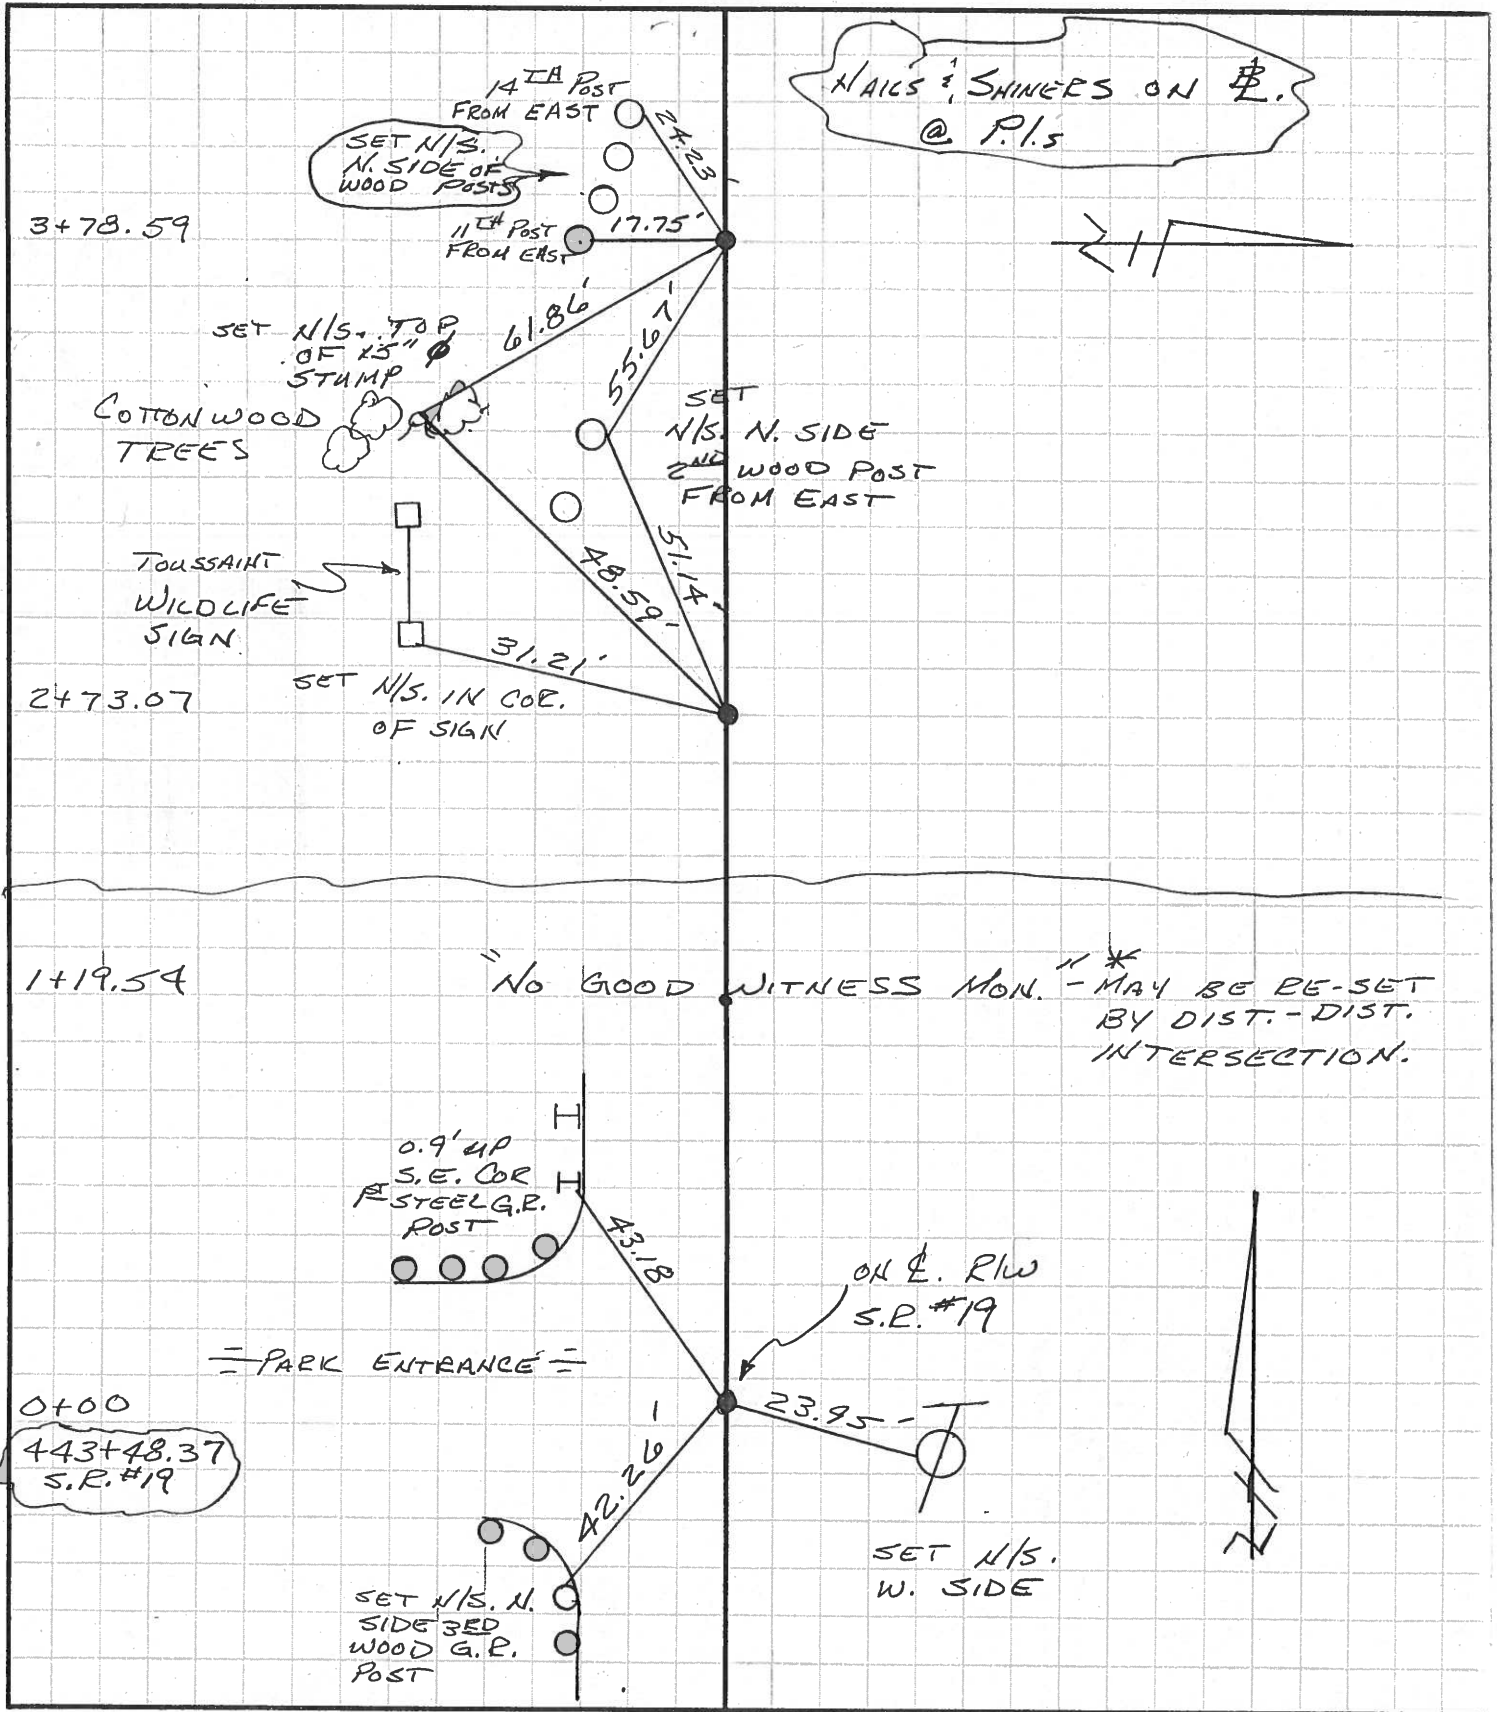 14TH POST
FROM EAST
24.23'
NAILS & SHINERS ON BL.
@ P.I.s
SET N/S.
N. SIDE OF
WOOD POSTS
3+78.59
11TH POST
FROM EAST
17.75'
N
61.86'
55.67'
SET N/S. TOP
OF 15" Ø
STUMP
COTTONWOOD
TREES
SET
N/S. N. SIDE
2ND WOOD POST
FROM EAST
TOUSSAINT
WILDLIFE
SIGN
48.59'
51.14'
31.21'
2+73.07
SET N/S. IN COR.
OF SIGN
1+19.54
"NO GOOD WITNESS MON." * - MAY BE RE-SET
BY DIST.-DIST.
INTERSECTION.
0.9' UP
S.E. COR
1ST STEEL G.R.
POST
43.18
ON ℄. R/W
S.R. #19
PARK ENTRANCE
0+00
443+48.37
S.R. #19
23.95'
42.26'
N
SET N/S.
W. SIDE
SET N/S. N.
SIDE 3RD
WOOD G.R.
POST